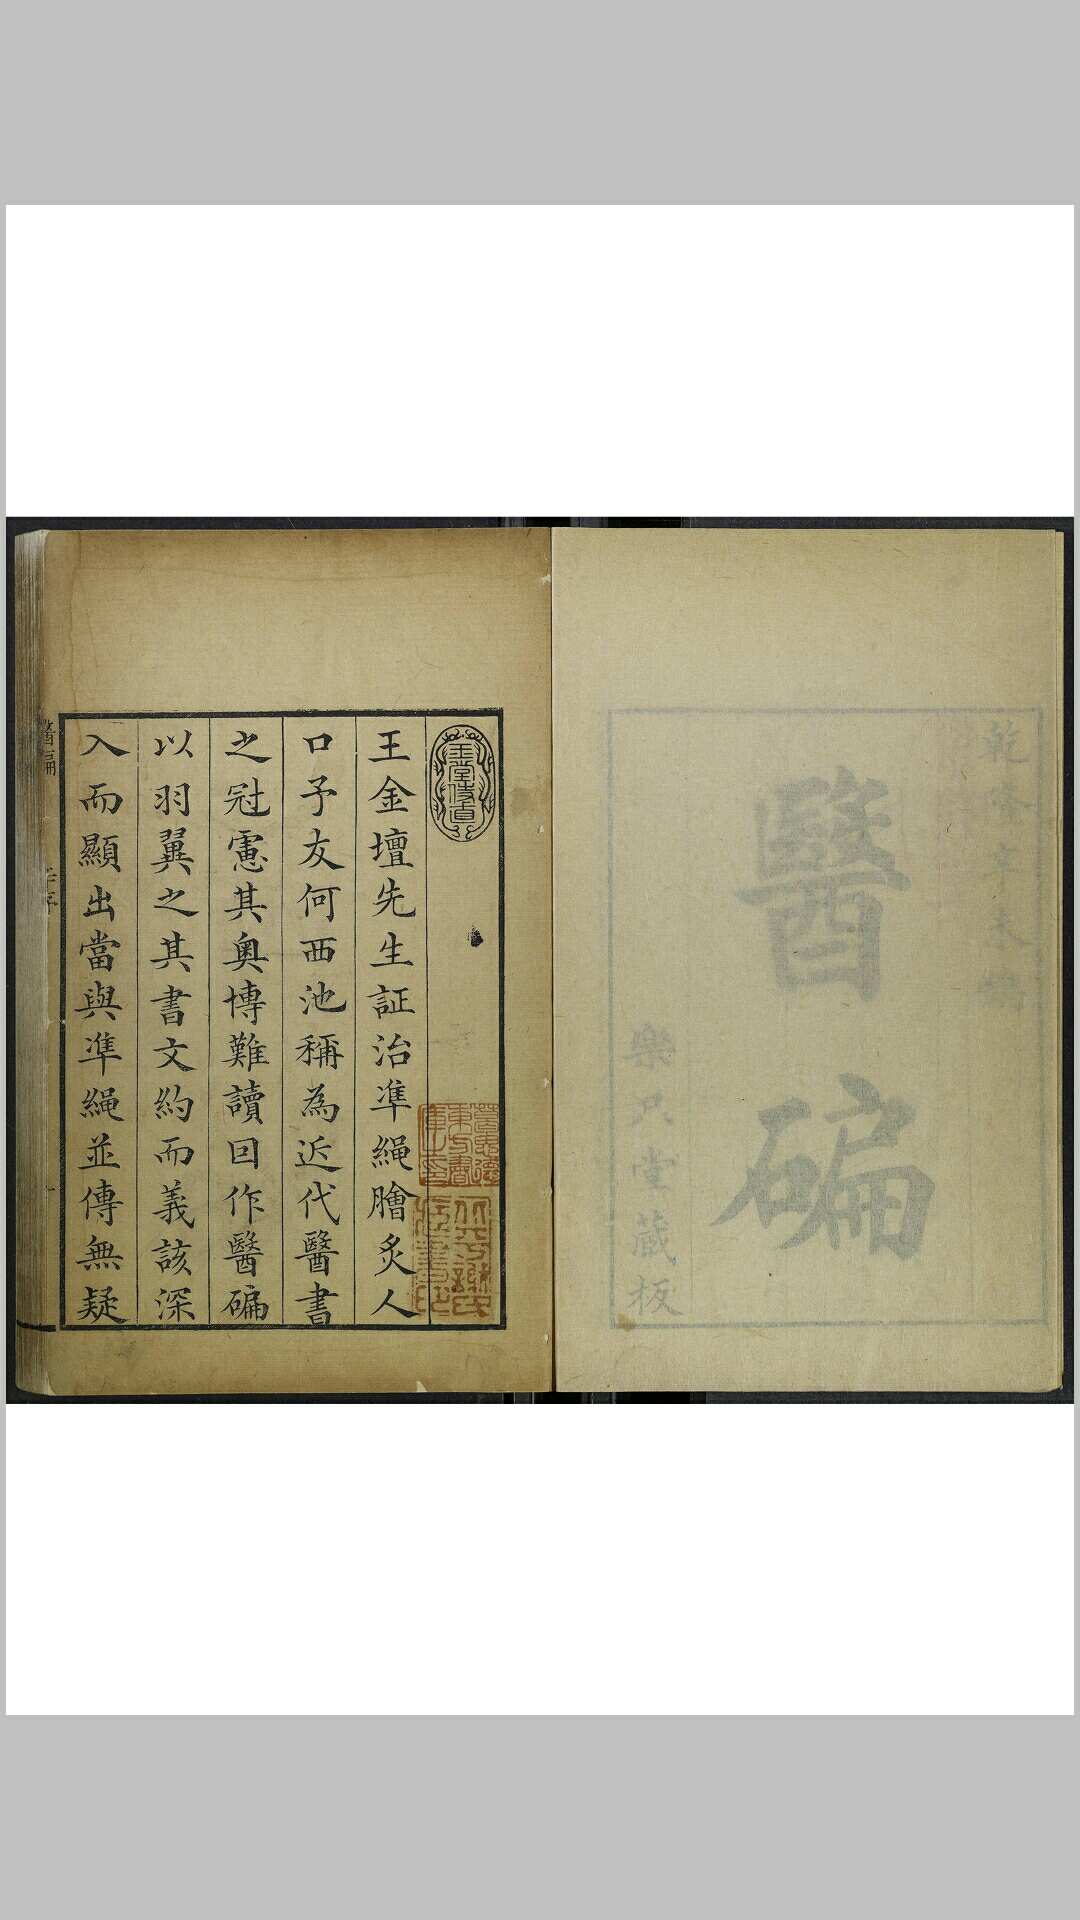 乾隆辛未
醫碥
樂只堂藏板
玉堂侍直
王金壇先生証治凖繩膾炙人
口予友何西池稱為近代醫書
之冠慮其奥愽難讀囙作醫碥
以羽翼之其書文約而義該深
入而顯出當與凖繩並傳無疑
醫碥